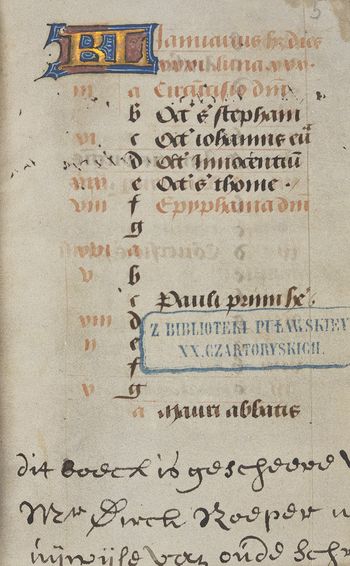 KL Januarius hz dies
xxxi luna xxx
iii a Circuncisio dni
b Oct s stephani
xi c Oct iohannis eu
d Oct Innocentiu
xix e Oct s thome
viii f Epyphania dni
g
xvi a
v b
c Pauli primi he
xiii d
ii e
f
g
a Mauri abbatis
Z BIBLIOTEKI PUŁAWSKIEY
XX. CZARTORYSKICH.
5
dit boeck is gescheere
Mr Dirck Roeper
oude